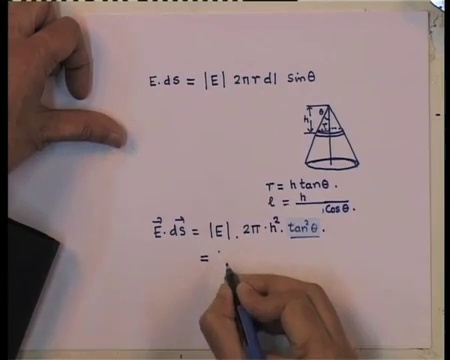 E. ds = |E| 2πr dl sinθ
h
θ
r
r = h tanθ .
ℓ = h / cosθ .
E⃗ . dS⃗ = |E| . 2π · h² . tan²θ .
=